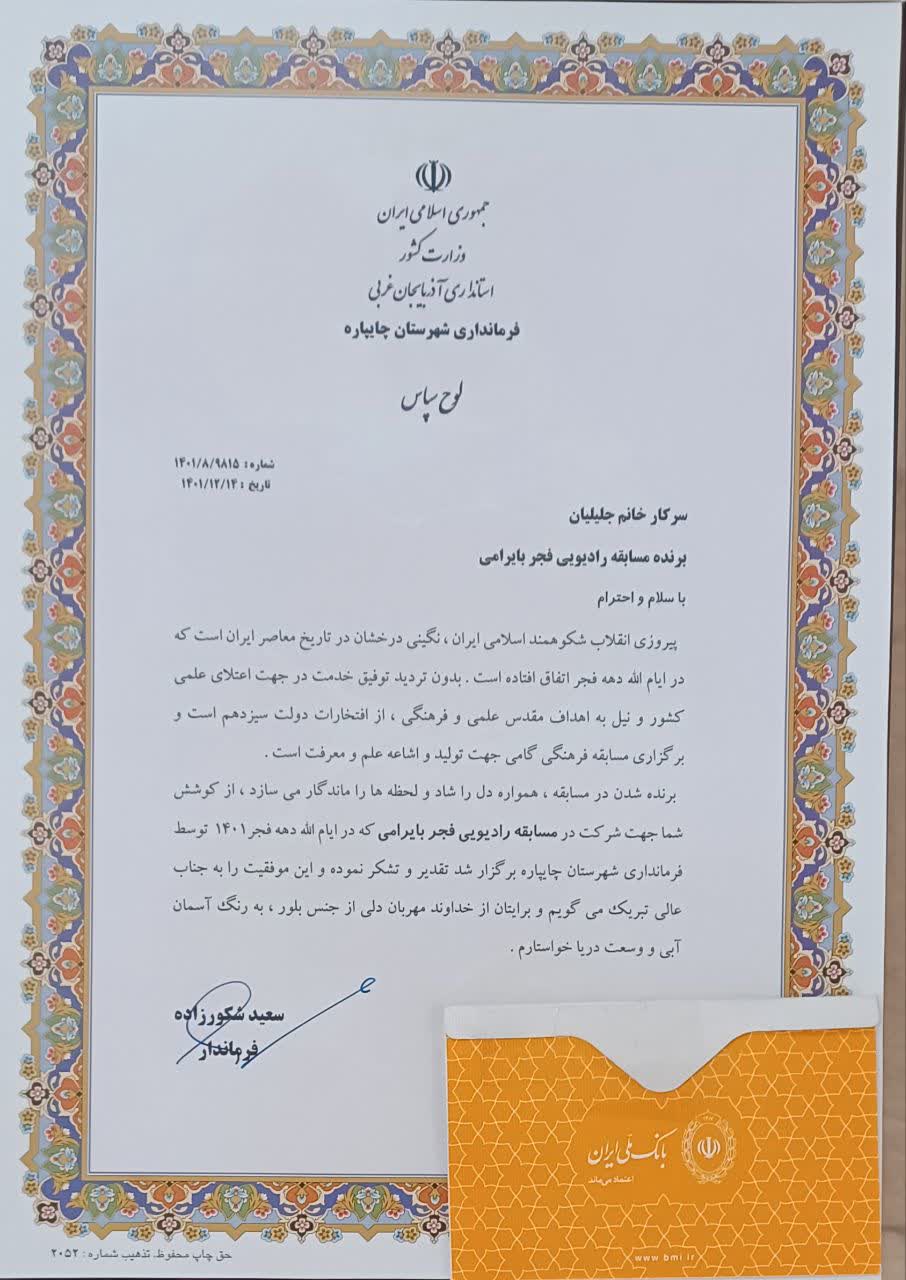 جمهوری اسلامی ایران
وزارت کشور
استانداری آذربایجان غربی
فرمانداری شهرستان چایپاره
لوح سپاس
شماره: ۱۴۰۱/۸/۹۸۱۵
تاریخ : ۱۴۰۱/۱۲/۱۴
سرکار خانم جلیلیان
برنده مسابقه رادیویی فجر بایرامی
با سلام و احترام
پیروزی انقلاب شکوهمند اسلامی ایران ، نگینی درخشان در تاریخ معاصر ایران است که
در ایام الله دهه فجر اتفاق افتاده است . بدون تردید توفیق خدمت در جهت اعتلای علمی
کشور و نیل به اهداف مقدس علمی و فرهنگی ، از افتخارات دولت سیزدهم است و
برگزاری مسابقه فرهنگی گامی جهت تولید و اشاعه علم و معرفت است .
برنده شدن در مسابقه ، همواره دل را شاد و لحظه ها را ماندگار می سازد ، از کوشش
شما جهت شرکت در مسابقه رادیویی فجر بایرامی که در ایام الله دهه فجر ۱۴۰۱ توسط
فرمانداری شهرستان چایپاره برگزار شد تقدیر و تشکر نموده و این موفقیت را به جناب
عالی تبریک می گویم و برایتان از خداوند مهربان دلی از جنس بلور ، به رنگ آسمان
آبی و وسعت دریا خواستارم .
سعید شکورزاده
فرماندار
بانک ملی ایران
اعتماد می‌ماند
www bmi ir
حق چاپ محفوظ. تذهیب شماره : ۲۰۵۲